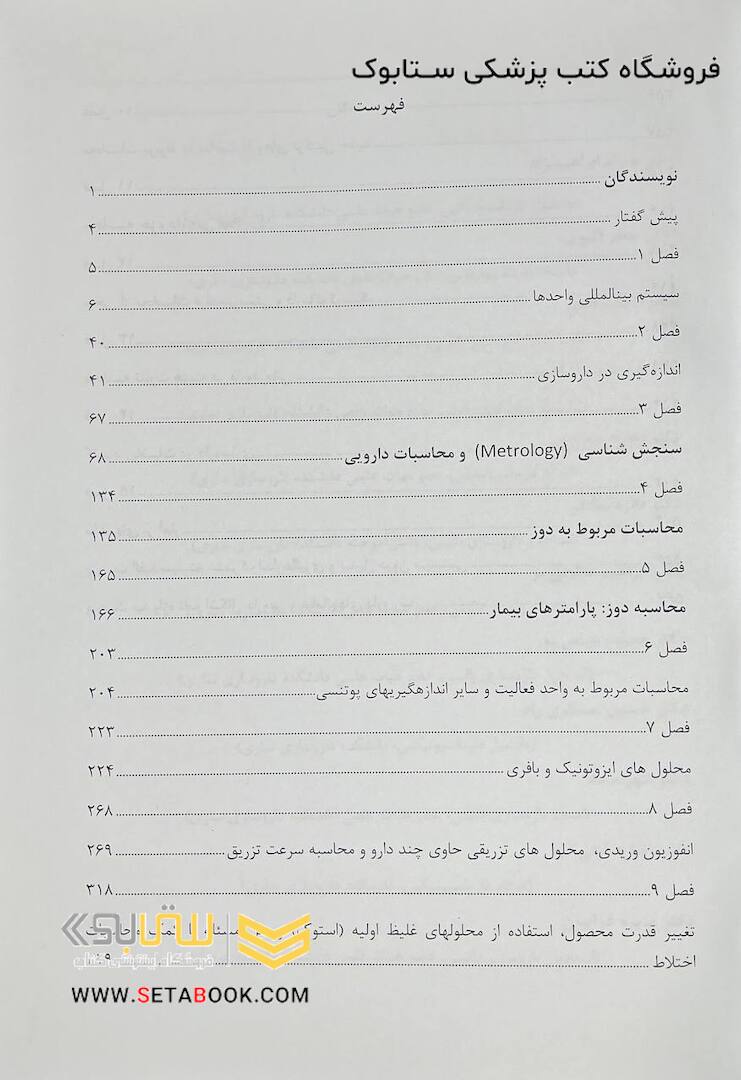 فروشگاه کتب پزشکی ستابوک
فهرست
نویسندگان ۱
پیش گفتار ۴
فصل ۱ ۵
سیستم بینالمللی واحدها ۶
فصل ۲ ۴۰
اندازه‌گیری در داروسازی ۴۱
فصل ۳ ۶۷
سنجش شناسی (Metrology) و محاسبات دارویی ۶۸
فصل ۴ ۱۳۴
محاسبات مربوط به دوز ۱۳۵
فصل ۵ ۱۶۵
محاسبه دوز: پارامترهای بیمار ۱۶۶
فصل ۶ ۲۰۳
محاسبات مربوط به واحد فعالیت و سایر اندازهگیریهای پوتنسی ۲۰۴
فصل ۷ ۲۲۳
محلول های ایزوتونیک و بافری ۲۲۴
فصل ۸ ۲۶۸
انفوزیون وریدی، محلول های تزریقی حاوی چند دارو و محاسبه سرعت تزریق ۲۶۹
فصل ۹ ۳۱۸
تغییر قدرت محصول، استفاده از محلولهای غلیظ اولیه (استوک)
اختلاط
ستابوک
فروشگاه اینترنتی کتاب
WWW.SETABOOK.COM